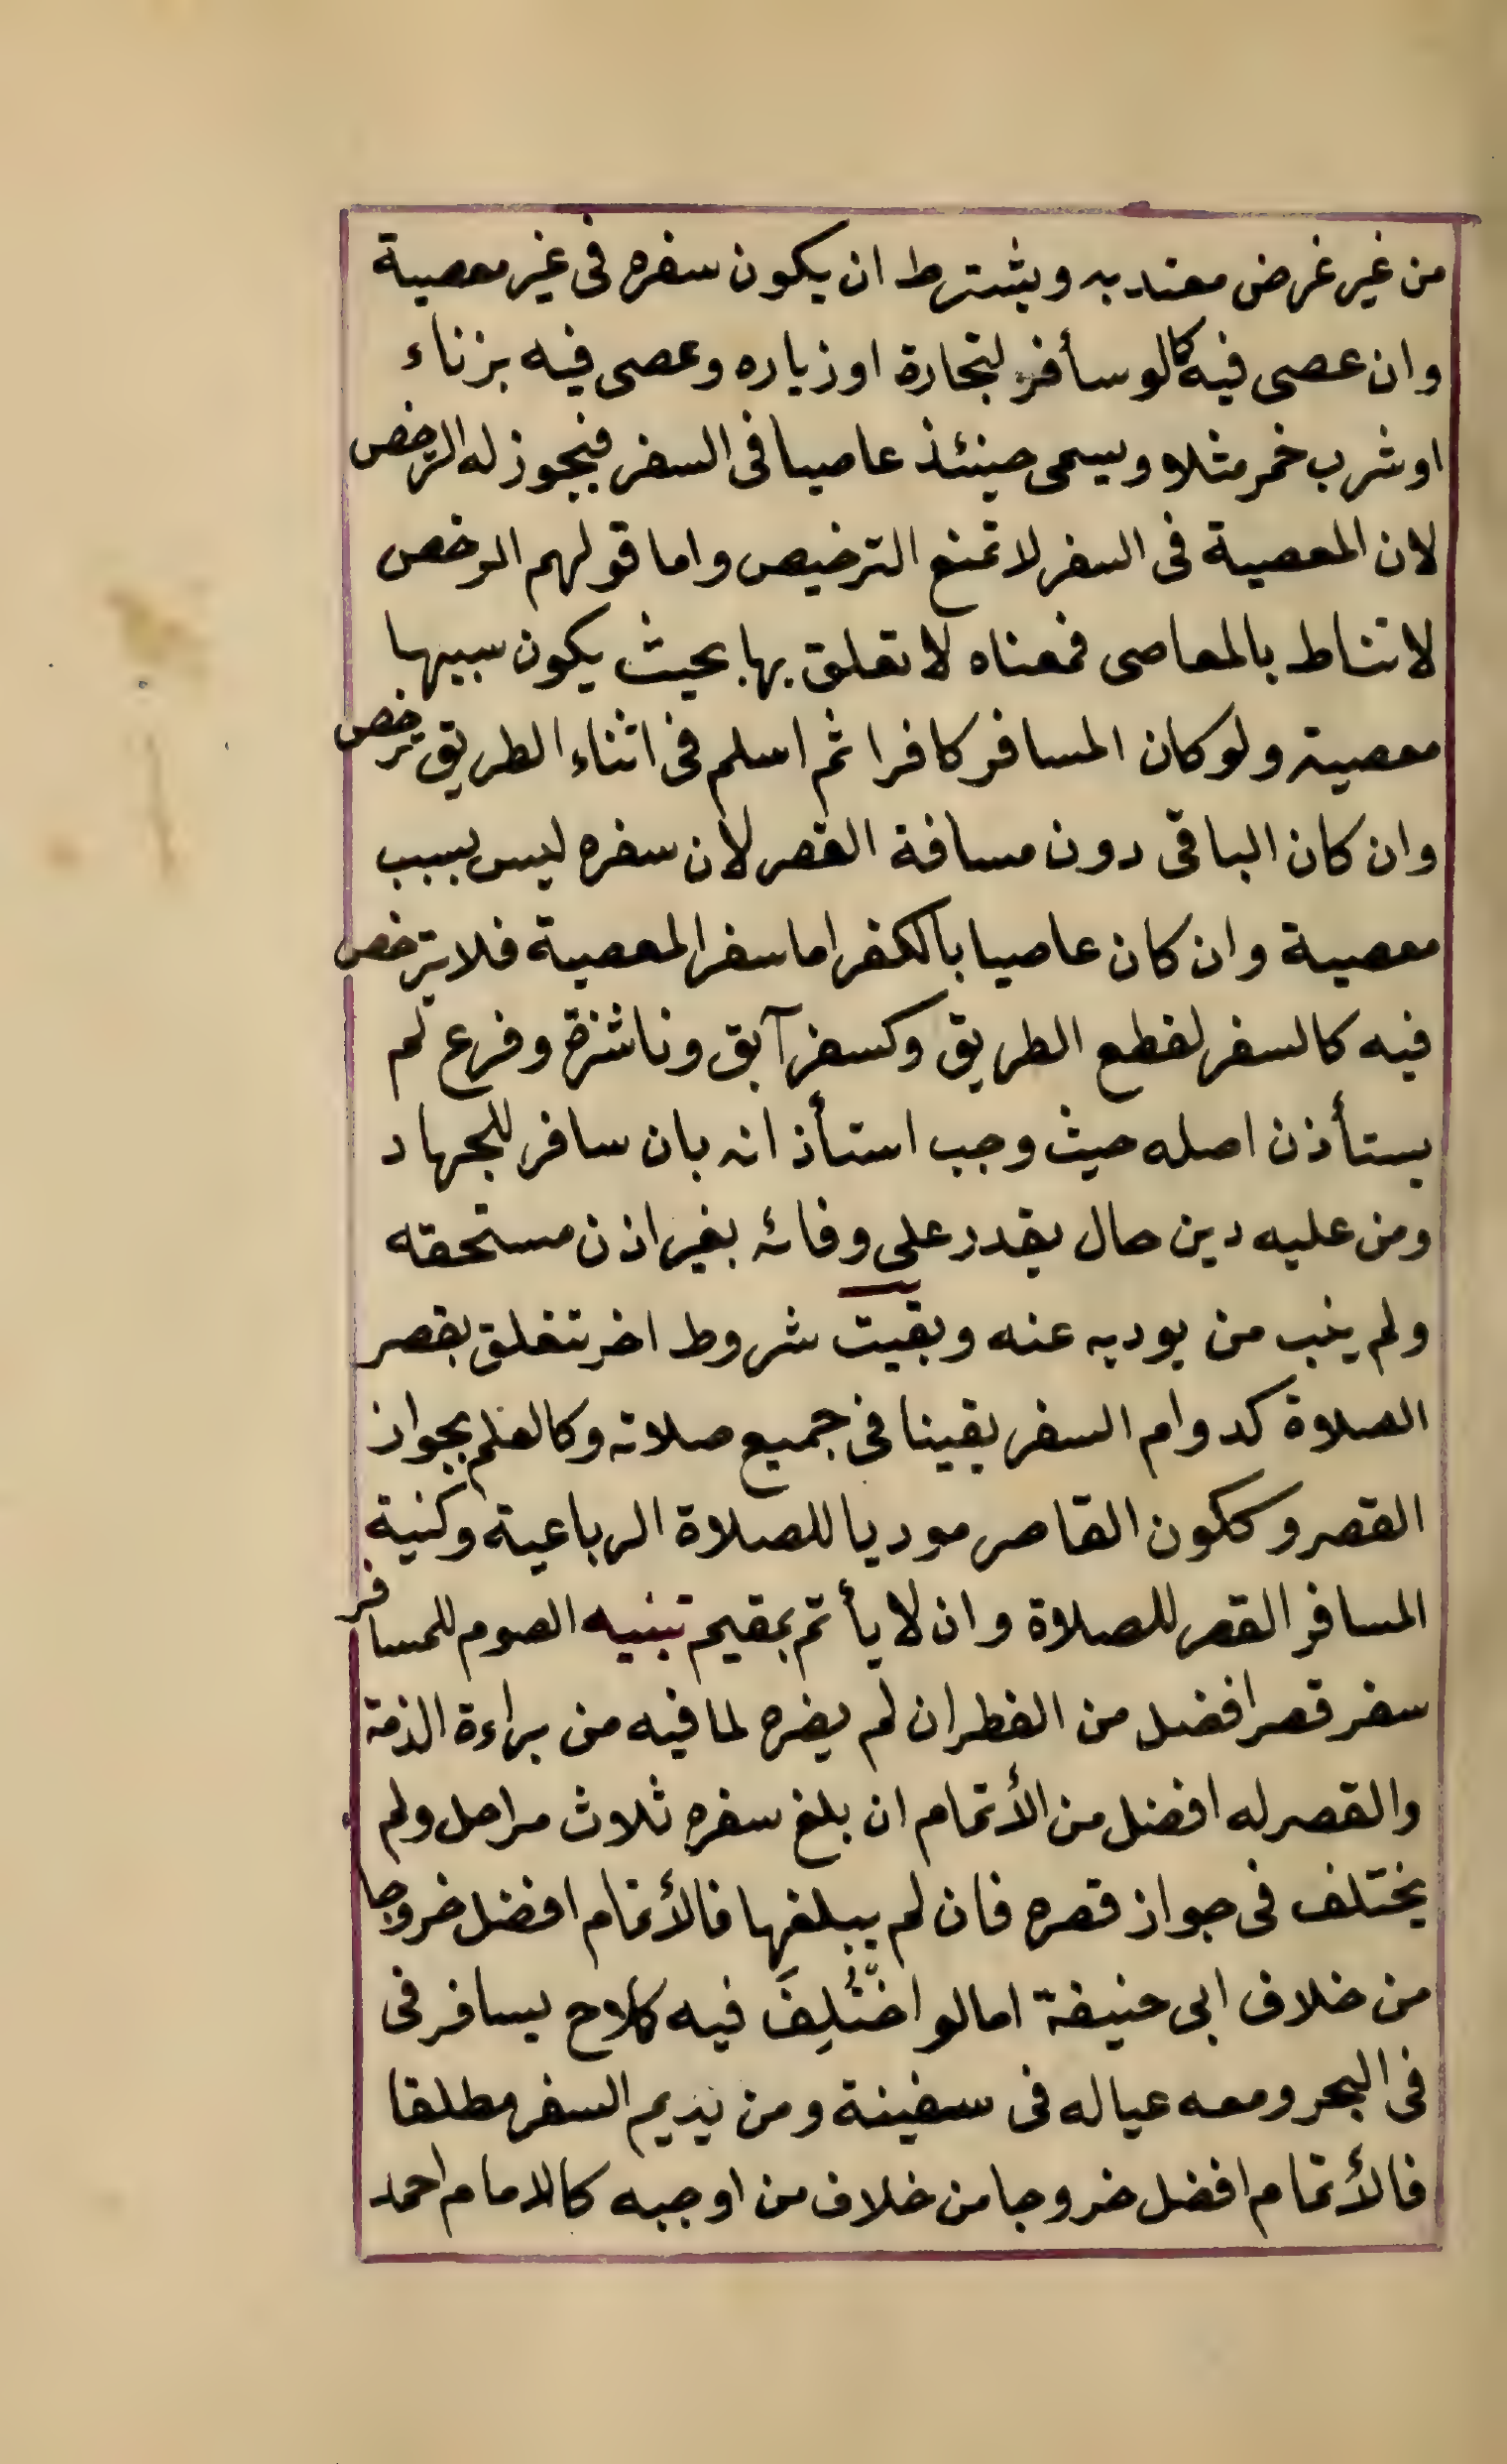 من غير غرض معتد به ويشترط ان يكون سفره فى غير معصية
وان عصى فيه كالو سأفر لتجارة او زياره وعصى فيه بزناء
اوشرب خمر مثلا ويسمى حينئذ عاصيا فى السفر فيجوز له الترخص
لان المعصية فى السفر لا تمنع الترخيص واما قولهم الرخص
لا تناط بالمعاصى فمعناه لا تعلق بها بحيث يكون سببها
معصيته ولو كان المسافر كافرا ثم اسلم فى اثناء الطريق ترخص
وان كان الباقى دون مسافة القصر لان سفره ليس بسبب
معصية وان كان عاصيا بالكفر اما سفر المعصية فلا يترخص
فيه كالسفر لقطع الطريق وكسفر آبق وناشزة وفرع لم
يستأذن اصله حيث وجب استأذانه بان سافر للجهاد
ومن عليه دين حال يقدر على وفائه بغير اذن مستحقه
ولم ينب من يوديه عنه وبقيت شروط اخر تتعلق بقصر
الصلاة كدوام السفر يقينا فى جميع صلاته وكالعلم بجواز
القصر وككون القاصر موديا للصلاة الرباعية وكنية
المسافر القصر للصلاة وان لا يأتم بمقيم تنبيه الصوم للمسافر
سفر قصر افضل من الفطر ان لم يضره لما فيه من براءة الذمة
والقصر له افضل من الأتمام ان بلغ سفره ثلاث مراحل ولم
يختلف فى جواز قصره فان لم يبلغها فالأتمام افضل خروجا
من خلاف ابى حنيفة اما لو اختُلِفَ فيه كلاح يسافر فى
فى البحر ومعه عياله فى سفينة ومن يديم السفر مطلقا
فالأتمام افضل خروجا من خلاف من اوجبه كالامام احمد